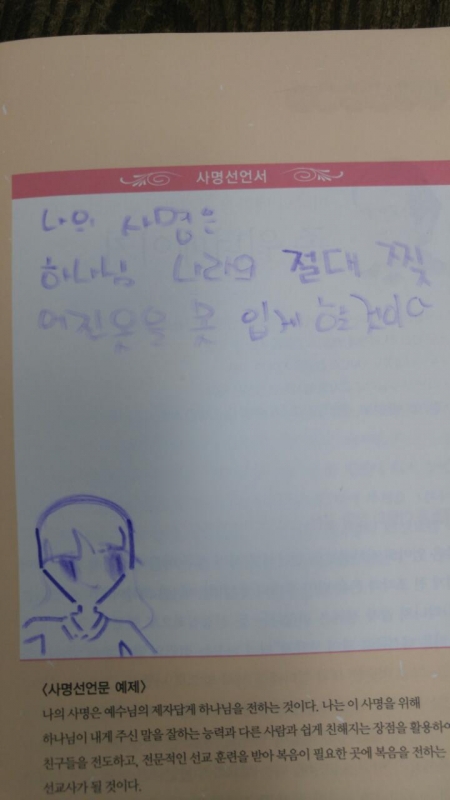 사명선언서
나의 사명은
하나님 나라의 절대 찢
어진옷을 못 입게 하는 것이다
<사명선언문 예제>
나의 사명은 예수님의 제자답게 하나님을 전하는 것이다. 나는 이 사명을 위해
하나님이 내게 주신 말을 잘하는 능력과 다른 사람과 쉽게 친해지는 장점을 활용하여
친구들을 전도하고, 전문적인 선교 훈련을 받아 복음이 필요한 곳에 복음을 전하는
선교사가 될 것이다.